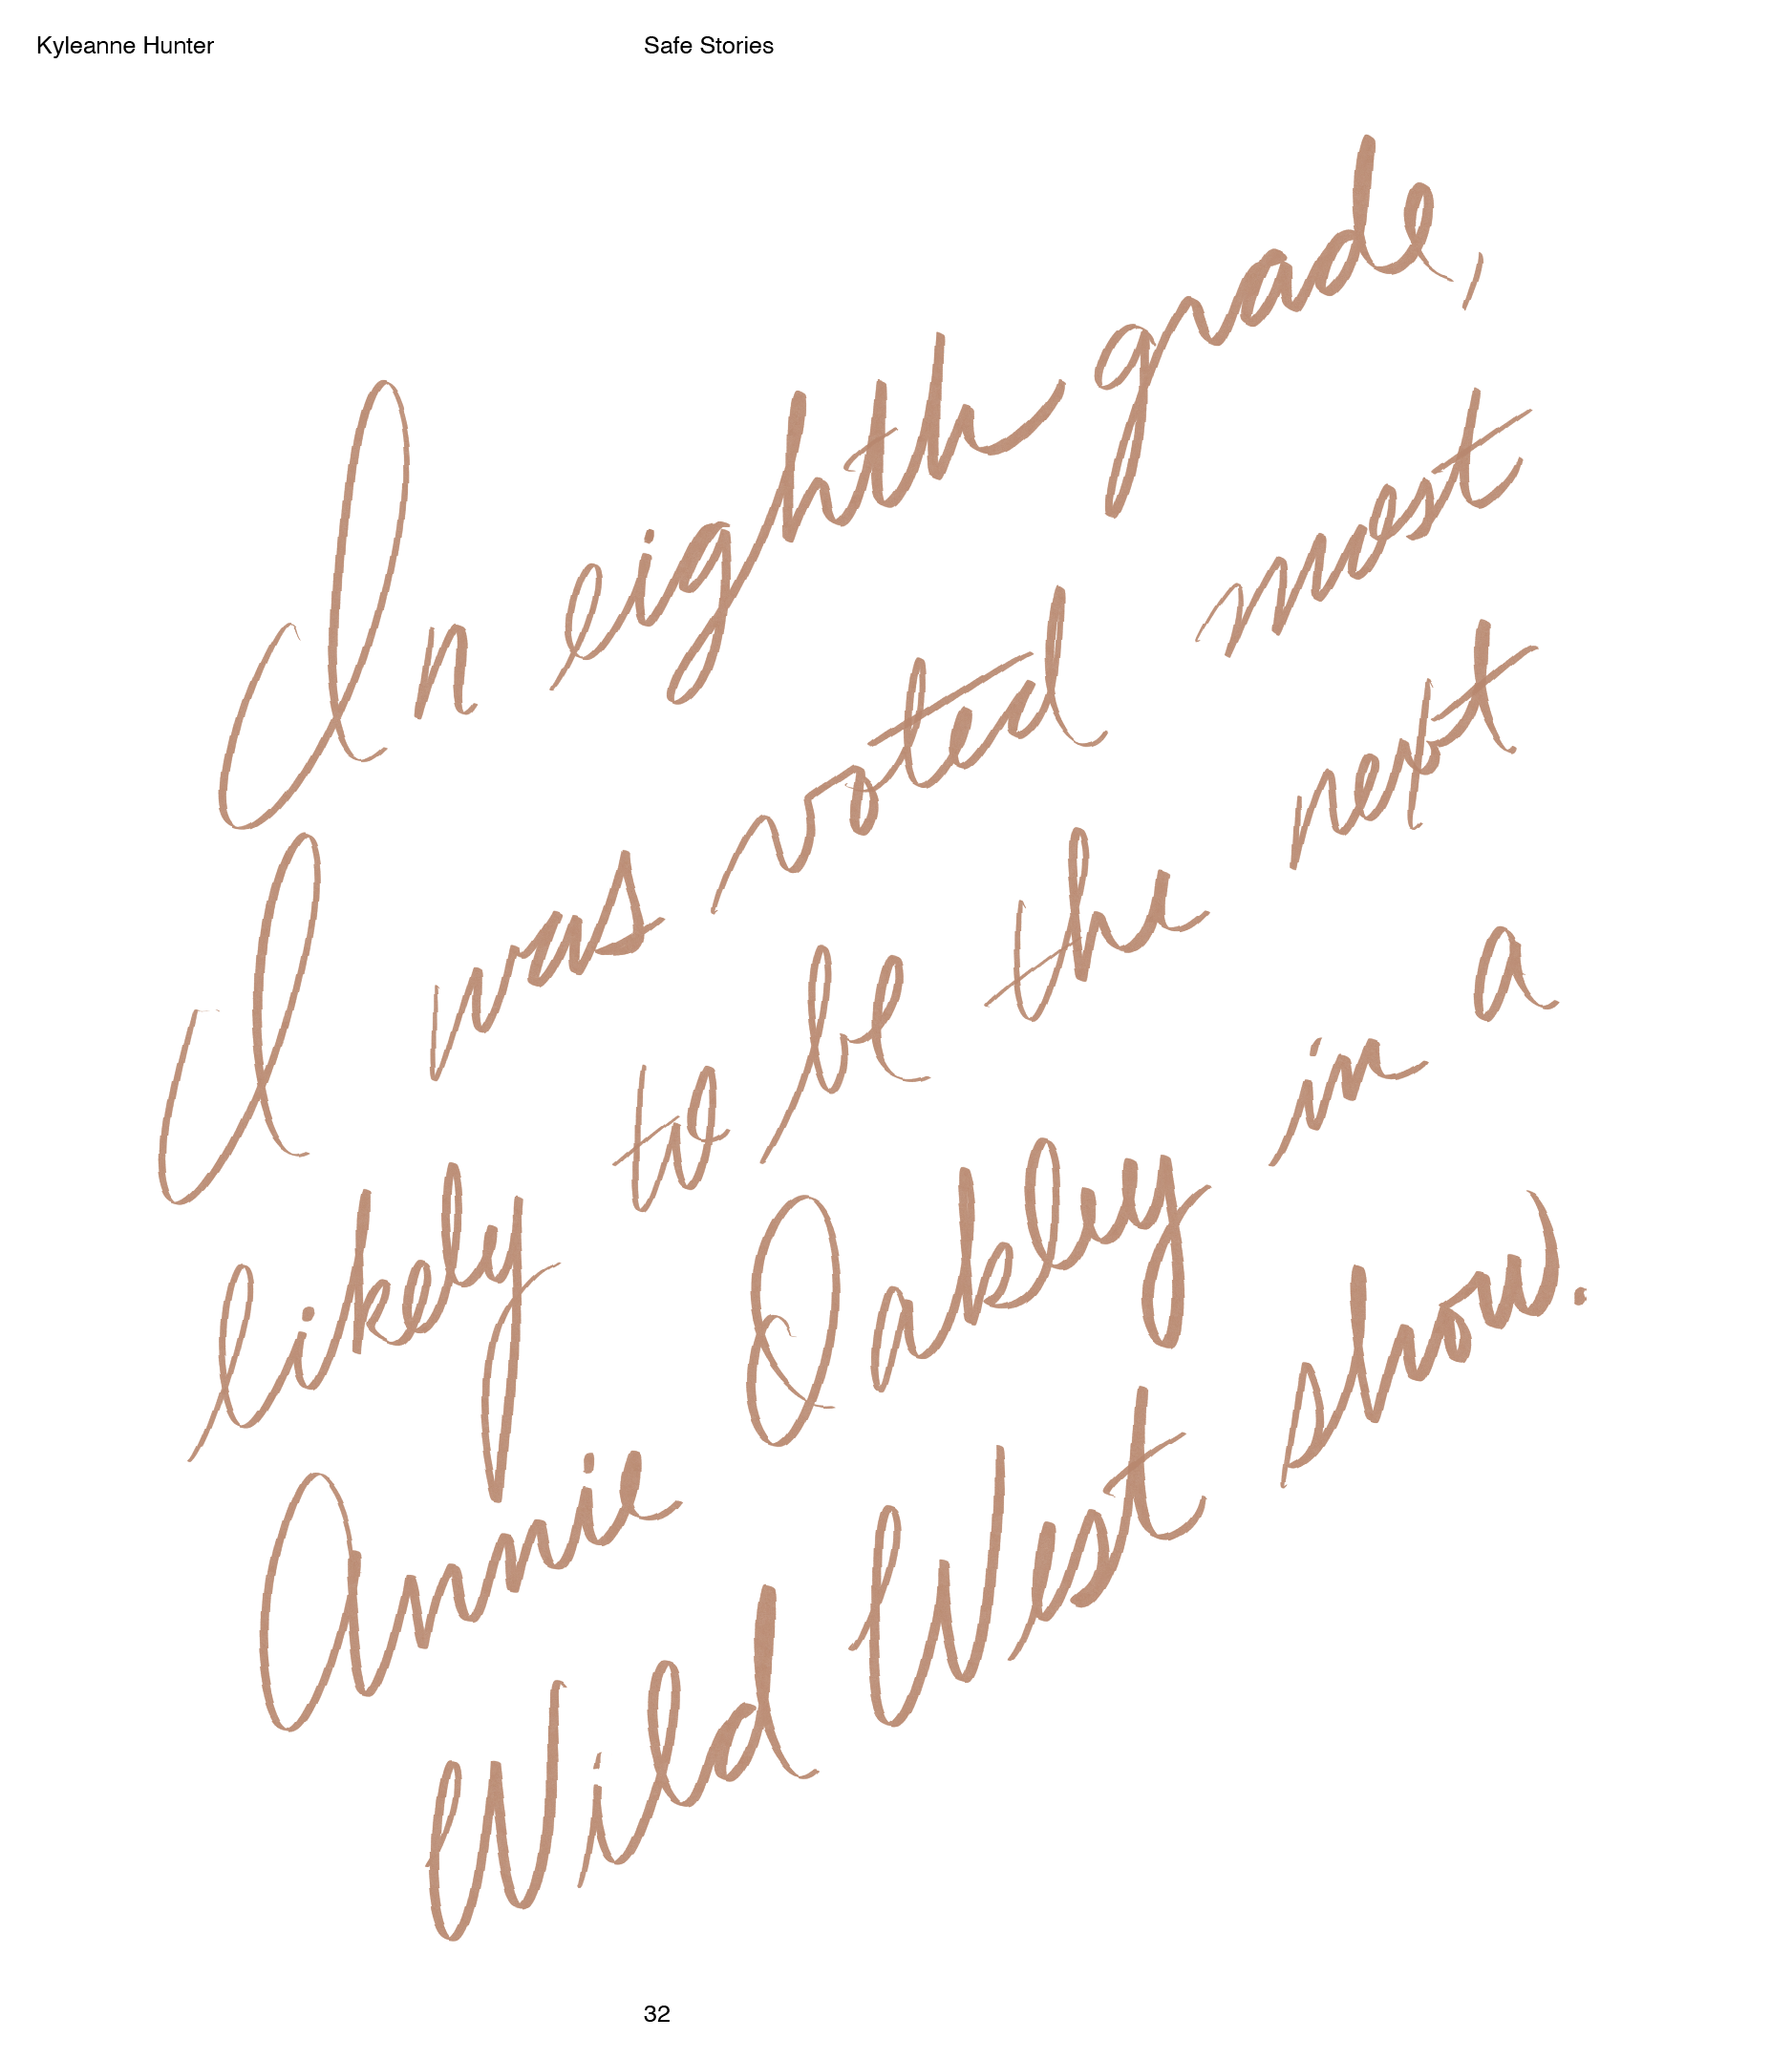 Kyleanne Hunter Safe Stories
In eighth grade,
I was voted most
likely to be the next
Annie Oakley in a
Wild West show.
32